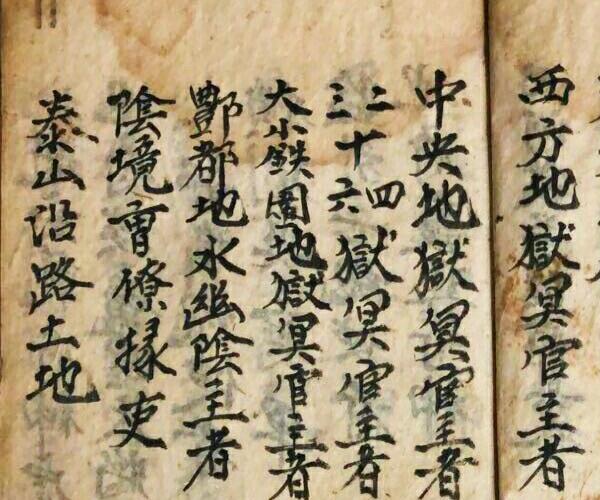 西方地獄冥官主者
中央地獄冥官主者
二三十四六獄冥官主者
大小鉄圍地獄冥官主者
酆都地水幽陰主者
陰境曹僚掾吏
泰山沿路土地